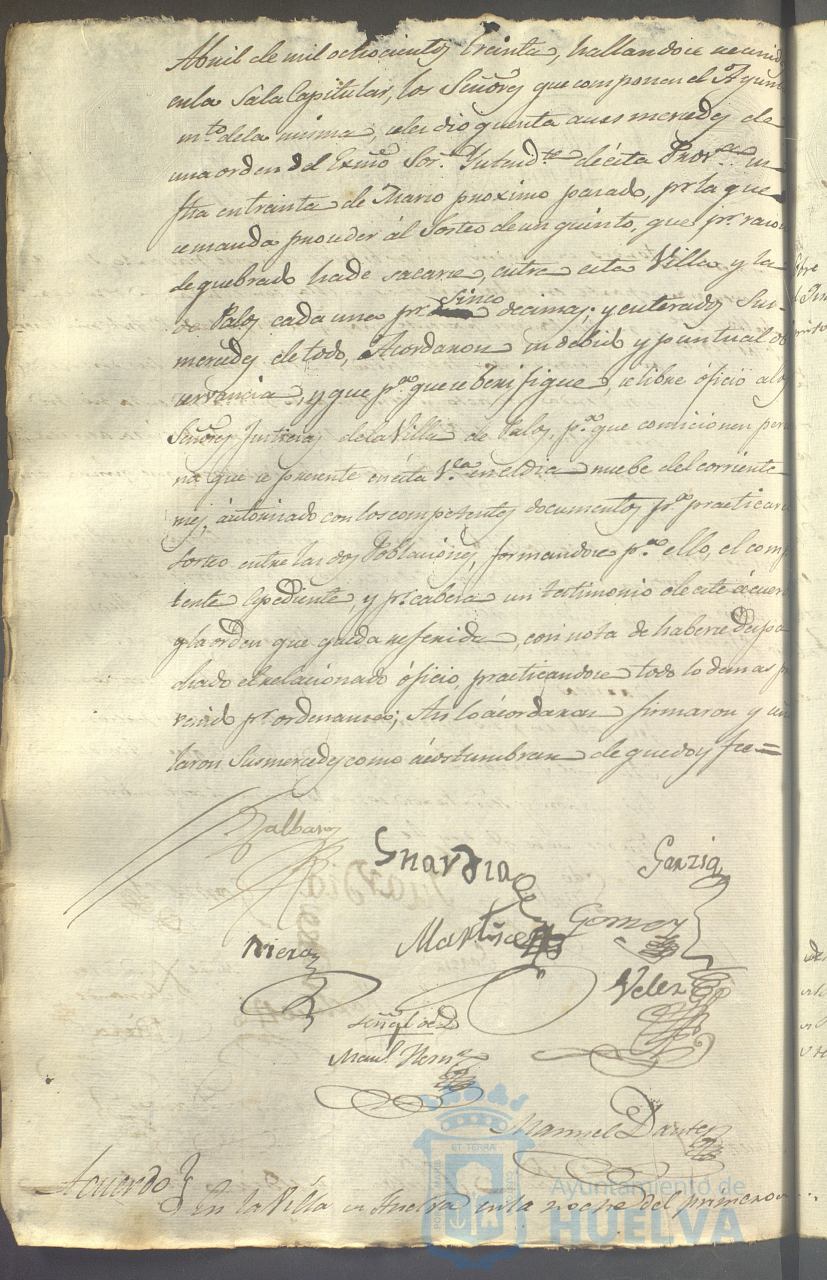 Abril de mil ochocientos treinta, hallandose reunid
en la Sala Capitular, los Señores que componen el Ayunt
mto de la misma, se les dio quenta a sus mercedes de
una orden del Exmo Sor. Yntendte de esta Prova.
fha en treinta de Marzo proximo pasado, pr. la que
se manda proceder al Sorteo de un quinto, que pr. razon
de quebrado hade sacarse, entre esta Villa y la
de Palos cada una pr. Sinco decimas; y enterados Sus
mercedes de todo, Acordaron su debida y puntual ob
servancia, y que pa. que se berifique, se libre óficio alos
Señores Justicias dela Villa de Palos, pa. que comicionen perso
na que se presente en esta Va. en el dia nuebe del corriente
mes, autorisado con los competentes documentos pa. practicar
Sorteo entre las dos Poblaciones, formandose pa. ello, el comp
tente Espediente, y pr. cabeza un testimonio de este ácuer
y la orden que queda referida, con nota de haberse despa
chado el relacionado óficio, practicandose todo lo demas p
venido pr. ordenanza; Asi lo ácordaron firmaron y señ
laron Sus mercedes como ácostumbran de que doy fee=
Guardia
Garzia
Martinez
Gomez
Riera
Velez
Señal de D
Manl. Hernz
Manuel Dante
Acuerdo
En la Villa de Huelva en la noche del primero
Ayuntamiento de
HUELVA